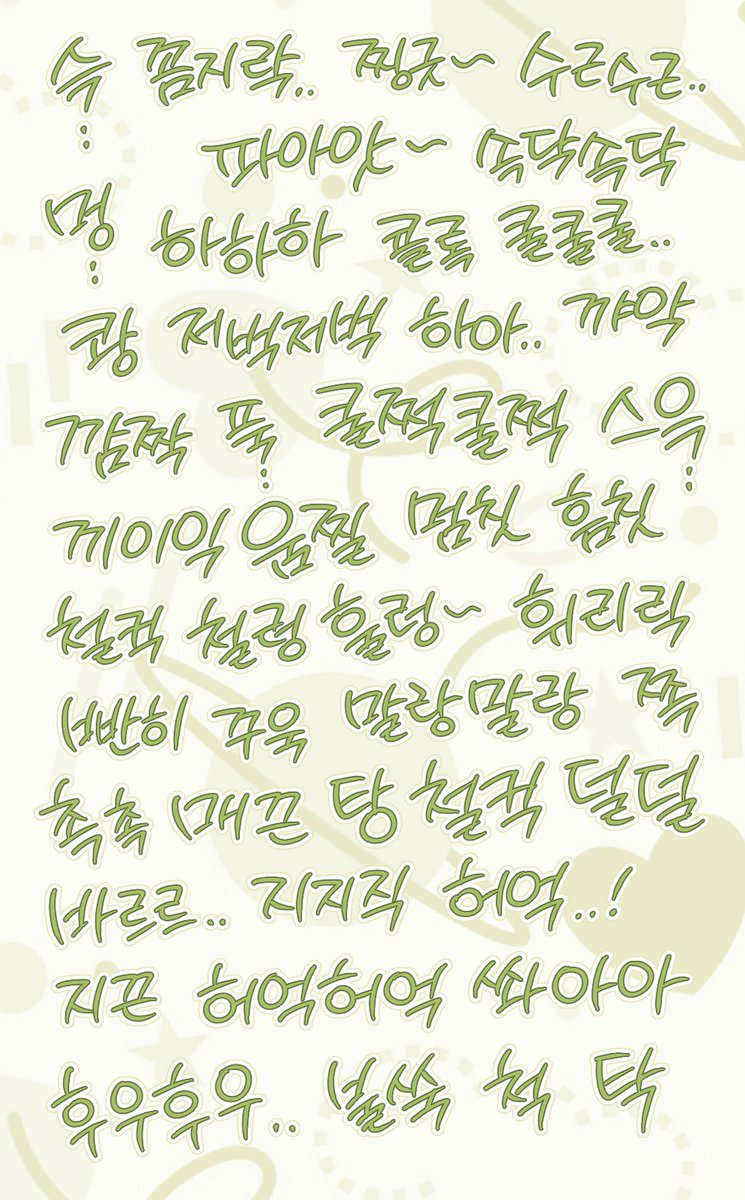 슥 : 꼼지락.. 찡긋~ 수근수근..
파아앗~ 쏙닥쏙닥
멍 : 하하하 콜록 쿨쿨쿨..
쾅 저벅저벅 하아.. 꺄악
깜짝 푹 : 쿨쩍쿨쩍 스윽 :
끼이익 움찔 멈칫 흠칫
철컥 철렁 훌렁~ 휘리릭
빤히 꾸욱 말랑말랑 쪽
촉촉 매끈 탕 철컥 덜덜
바르르.. 지지직 허억..!
지끈 허억허억 쏴아아
후우후우.. 불쑥 척 탁